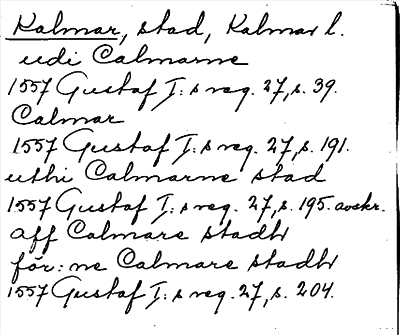 Kalmar, stad, Kalmar l.
udi Calmarne
1557 Gustaf I:s reg. 27, s. 39.
Calmar
1557 Gustaf I:s reg. 27, s. 191.
uthi Calmarne stad
1557 Gustaf I:s reg. 27, s. 195. avskr.
aff Calmare stadh
för:ne Calmare stadh
1557 Gustaf I:s reg. 27, s. 204.